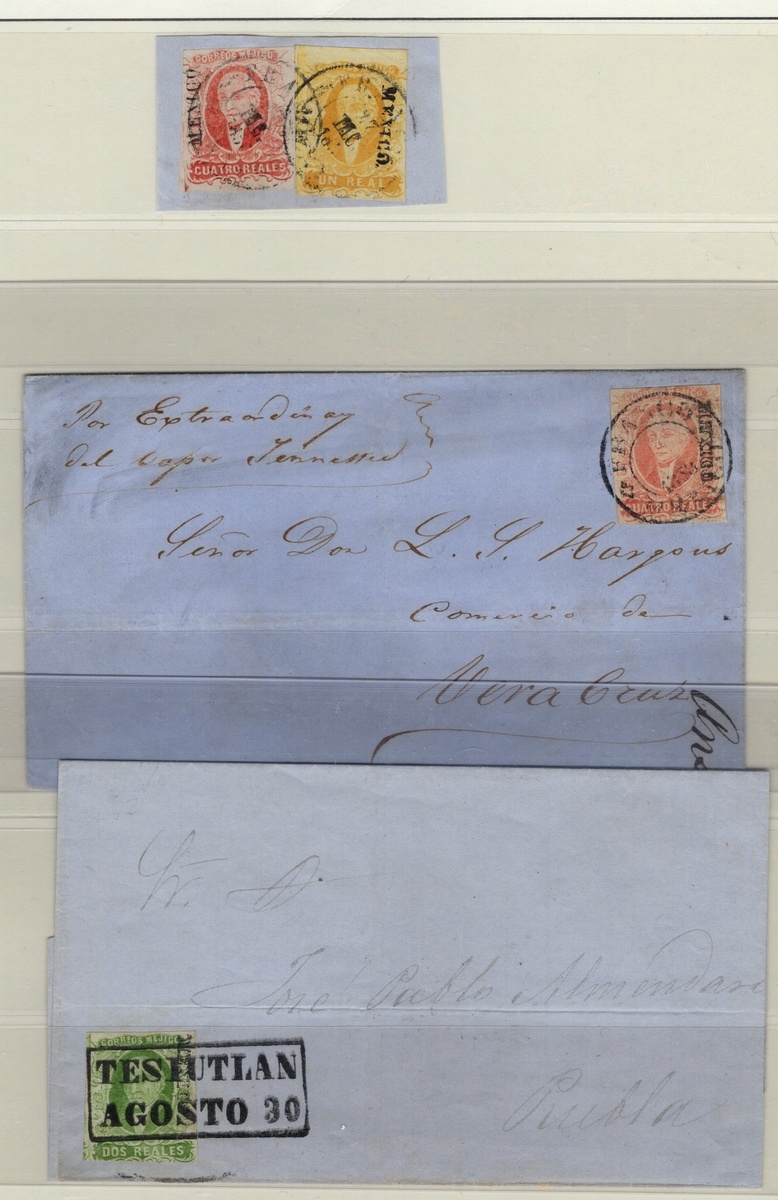 CORREOS MEJICO
MEXICO
CUATRO REALES
MEXICO.
UN REAL
Por Extraordinary
del vapor Tennessee
MEXICO
CUATRO REALES
Señor Don L. S. Hargous
Comercio de
Vera Cruz
Sr. D.
José Pablo Almendaro
Puebla
CORREOS MEJICO
TESIUTLAN
AGOSTO 30
DOS REALES